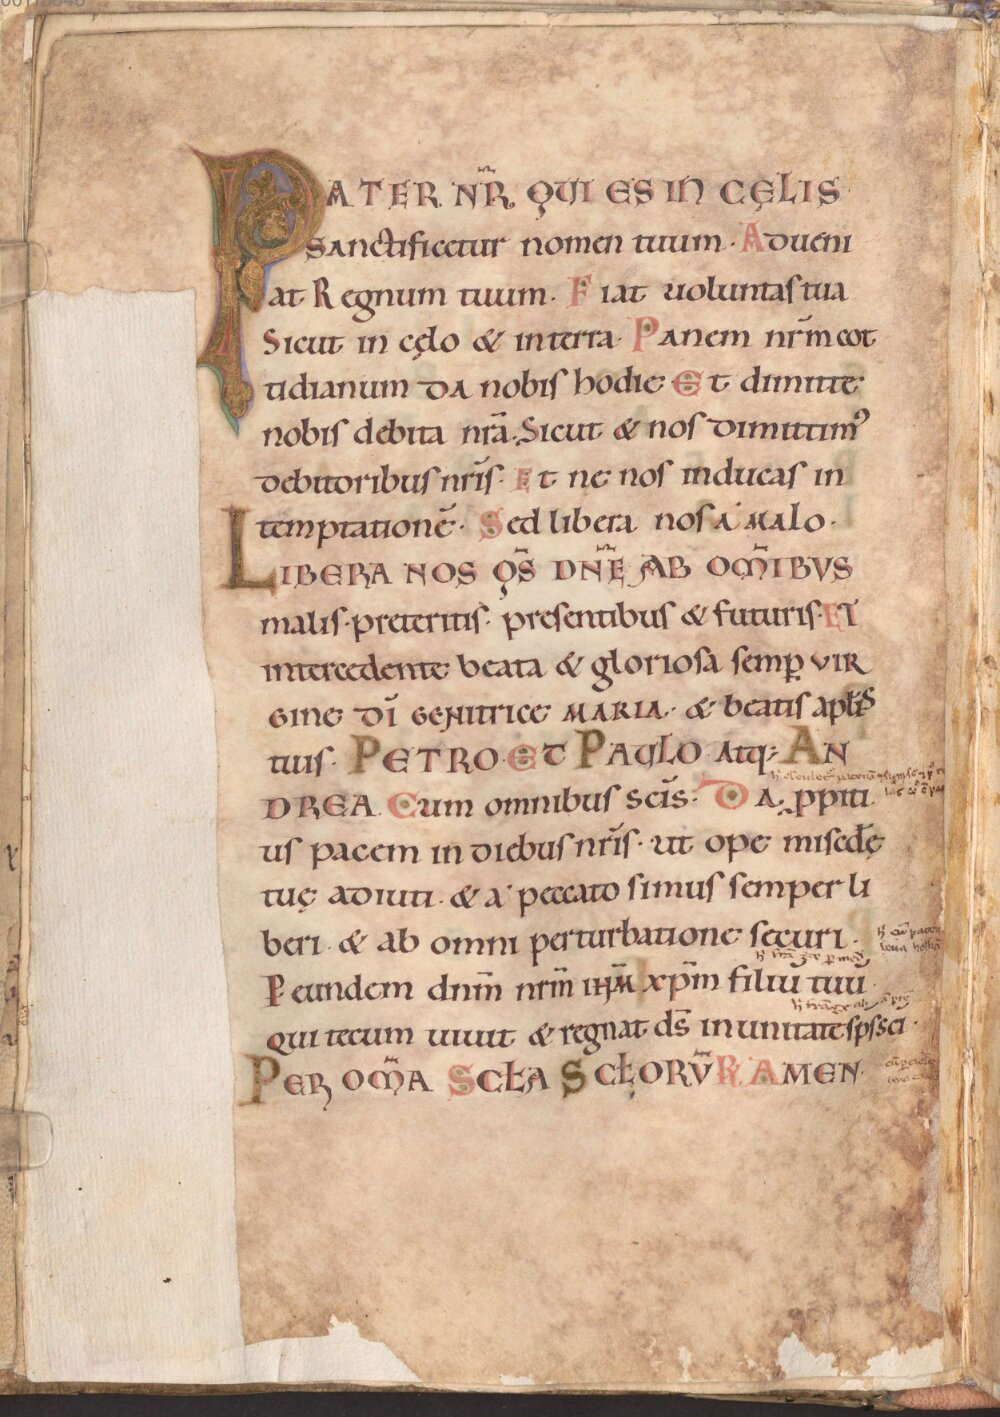 PATER NR̃. QUI ES IN CĘLIS
Sanctificetur nomen tuum. Adveni
at Regnum tuum. Fiat voluntas tua
Sicut in cęlo & in terra. Panem nr̃m cot
tidianum DA nobis hodie Et dimitte
nobis debita nr̃a. Sicut & nos dimittimꝰ
debitoribus nr̃is. Et ne nos inducas in
temptationẽ. Sed libera nos A MALO.
LIBERA NOS QS̃ DÑE AB OM̃IBVS
malis. preteritis. presentibus & futuris. ET
intercedente beata & gloriosa semꝑ VIR
GINE DĨ GENITRICE MARIA. & beatis apl̃is
tuis. PETRO. ET PAULO. ATq; AN
DREA. Cum omnibus SCĨS. DA. ꝓpiti
us pacem in diebus nr̃is. ut ope misedẽ
tuę adiuti. & a peccato simus semper li
beri. & ab omni perturbatione securi.
P eundem dnm̃ nr̃m ihm̃ xp̃m filiũ tuũ.
qui tecum vivit & regnat ds̃ in unitate sp̃s sc̃i.
PER OM̃A SCŁA SCŁORṼ R̃ AMEN.